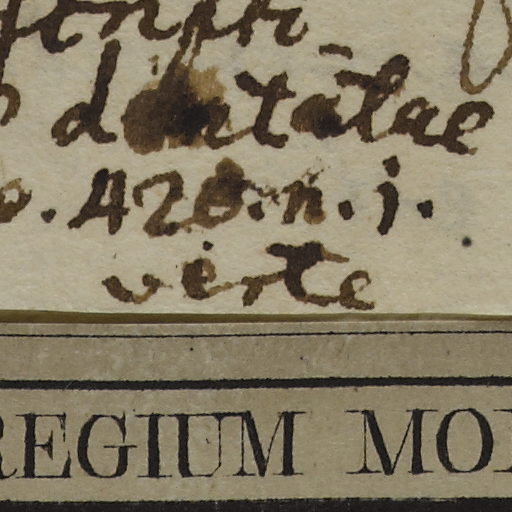 dentalae
420. n. j.
verte
REGIUM MO